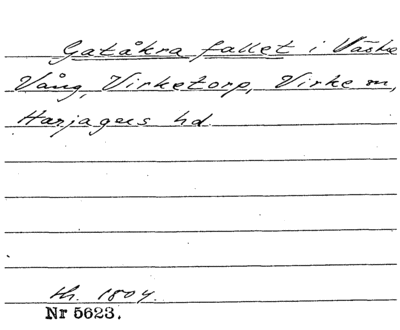 Gatåkra fallet i Västra
Vång, Virketorp, Virke m,
Harjagers hd.
th. 1804.
Nr 5623.